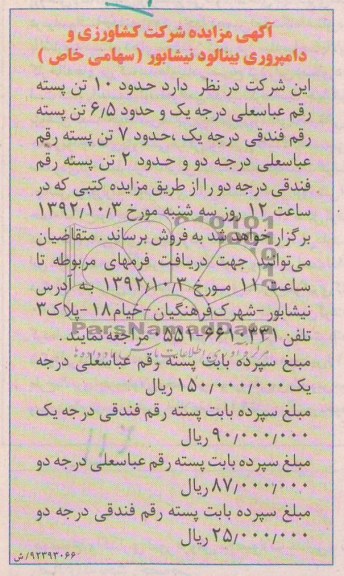 آگهی مزایده شرکت کشاورزی و
دامپروری بینالود نیشابور ( سهامی خاص )
این شرکت در نظر دارد حدود ۱۰ تن پسته
رقم عباسعلی درجه یک و حدود ۶٫۵ تن پسته
رقم فندقی درجه یک ،حدود ۷ تن پسته رقم
عباسعلی درجه دو و حدود ۲ تن پسته رقم
فندقی درجه دو را از طریق مزایده کتبی که در
ساعت ۱۲ روز سه شنبه مورخ ۱۳۹۲/۱۰/۳
برگزار خواهد شد به فروش برساند . متقاضیان
می‌توانند جهت دریافت فرمهای مربوطه تا
ساعت ۱۱ مورخ ۱۳۹۲/۱۰/۳ به آدرس
نیشابور-شهرک فرهنگیان-خیام ۱۸ -پلاک ۳
تلفن ۶۶۱۰۲۳۱-۰۵۵۱ مراجعه نمایند .
ParsNamadData
مبلغ سپرده بابت پسته رقم عباسعلی درجه
یک ۱۵۰/۰۰۰/۰۰۰ ریال
مبلغ سپرده بابت پسته رقم فندقی درجه یک
۹۰/۰۰۰/۰۰۰ ریال
مبلغ سپرده بابت پسته رقم عباسعلی درجه دو
۸۷/۰۰۰/۰۰۰ ریال
مبلغ سپرده بابت پسته رقم فندقی درجه دو
۲۵/۰۰۰/۰۰۰ ریال
۹۲۳۹۳۰۶۶/ش